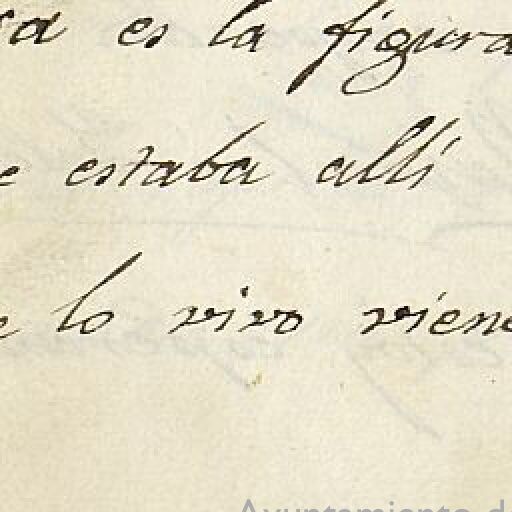 es la figura
estaba allí
lo vivo viene
Ayuntamiento de